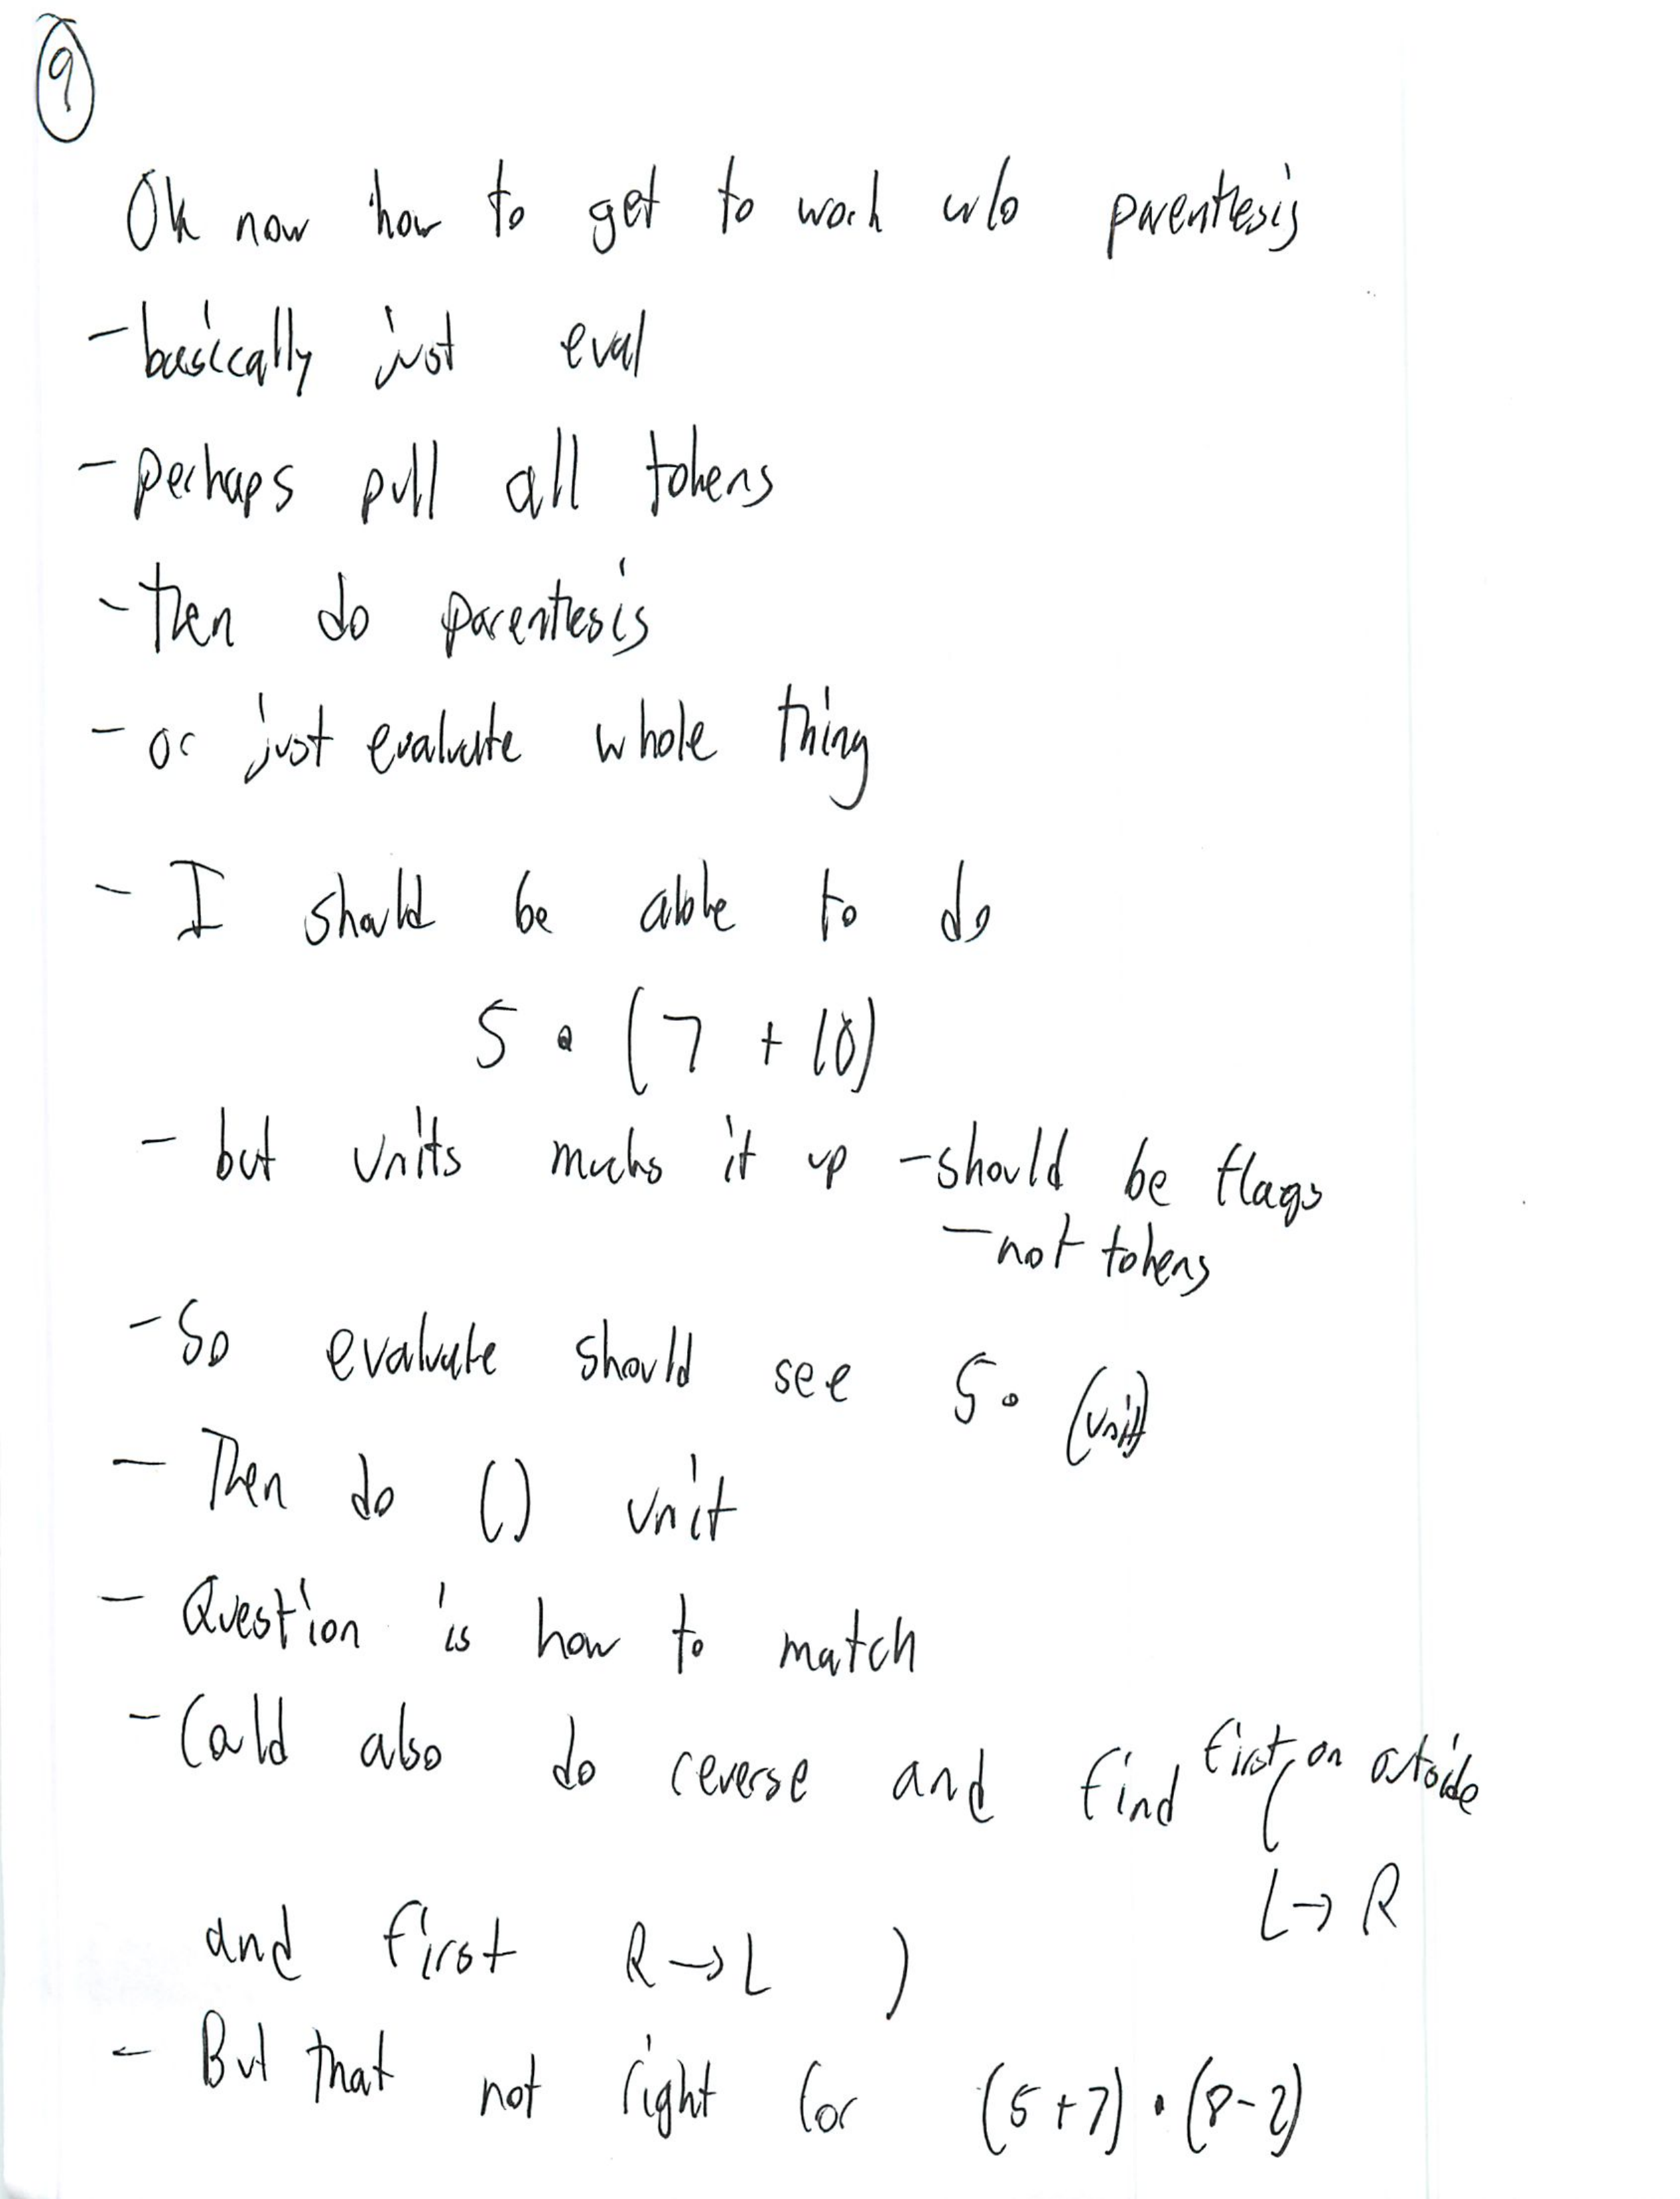 9
Ok now how to get to work w/o parentesis
- basically just eval
- perhaps pull all tokens
- then do parentesis
- or just evaluate whole thing
- I should be able to do
5 • (7 + 10)
- but units mucks it up - should be flags
- not tokens
- So evaluate should see 5 • (unit)
- Then do () unit
- Question is how to match
- Could also do reverse and find first ( on outside
L → R
and first R → L )
- But that not right for (5+7) • (8-2)